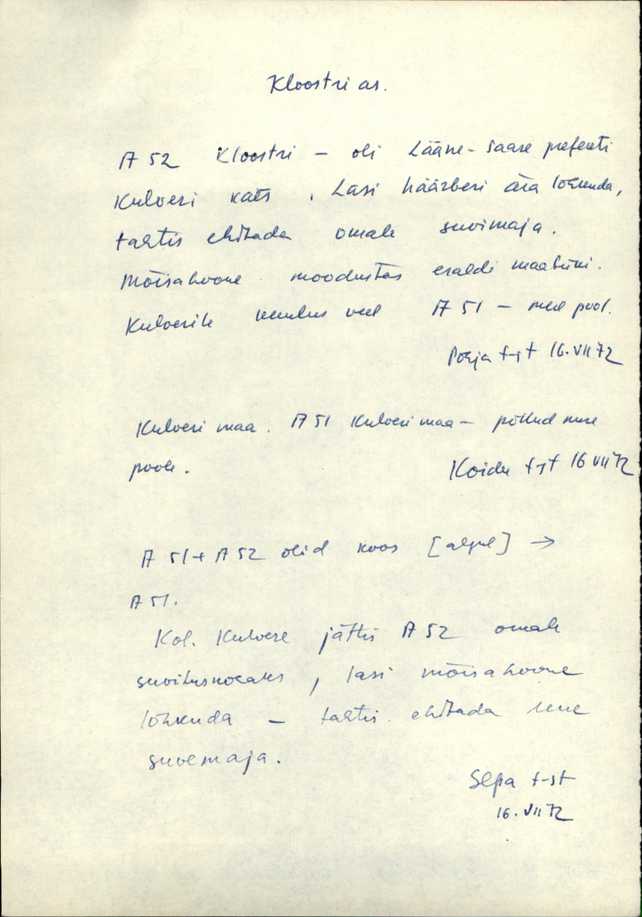 Kloostri as.
A 52 Kloostri – oli Lääne-Saare prefekti
Kulveri käes. Lasi häärberi ära lõhkuda,
tahtis ehitada omale suvimaja.
Mõisahoone moodustas eraldi maatüki.
Kulverile kuulus veel A 51 – mere pool.
Põhja t-st 16.VII 72
Kulveri maa. A 51 Kulveri maa – põllud mere
poole.
Koidu t-st 16 VII 72
A 51 + A 52 olid koos [algul] →
A 51.
Kol. Kulvere jättis A 52 omale
suvituskohaks, lasi mõisahoone
lõhkuda – tahtis ehitada uue
suvemaja.
Sepa t-st
16.VII 72